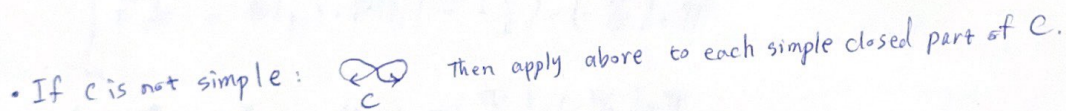 • If c is not simple : C Then apply above to each simple closed part of C.